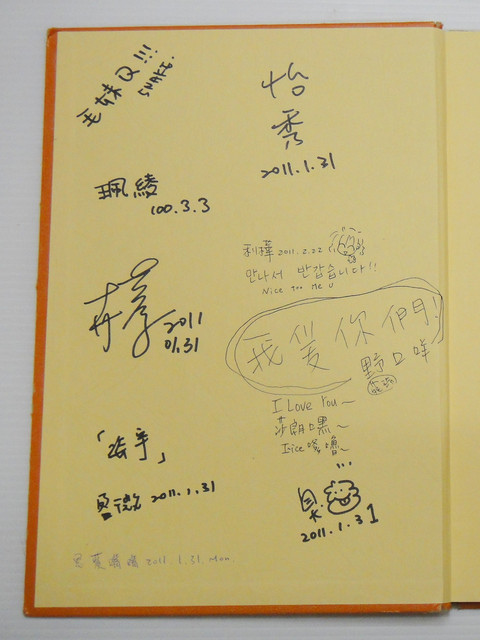 毛妹Q!!!
SNAKE.
怡
秀
2011.1.31
珮綾
100.3.3
2011.2.22
만나서 반갑습니다!!
Nice too Me U
2011
01.31
我愛你們!
野口哞
I Love You~
莎朗嘿~
「海芋」
盈微 2011.1.31
2011.1.31
2011.1.31.Mon.